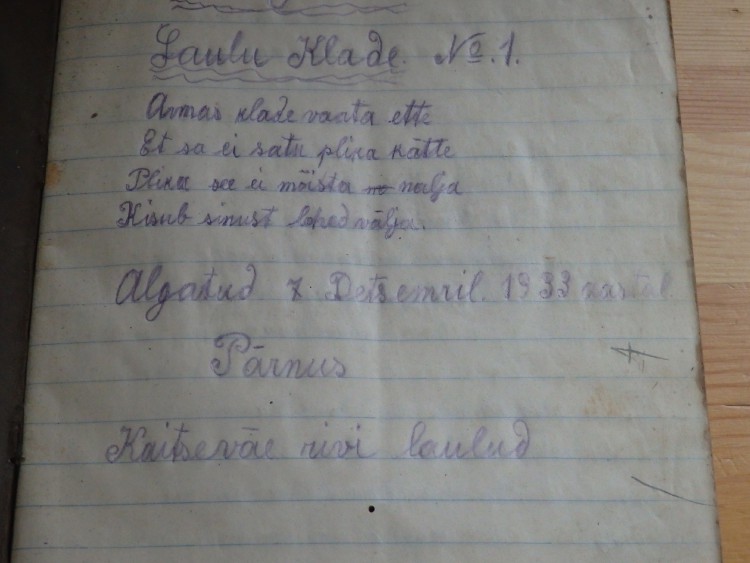 Laulu Klade. No. 1.
Armas klade vaata ette
Et sa ei satu plika kätte
Plika see ei mõista nalja
Kisub sinust lehed välja.
Algatud 7 Detsemril. 1933 aastal.
Pärnus
Kaitseväe rivi laulud